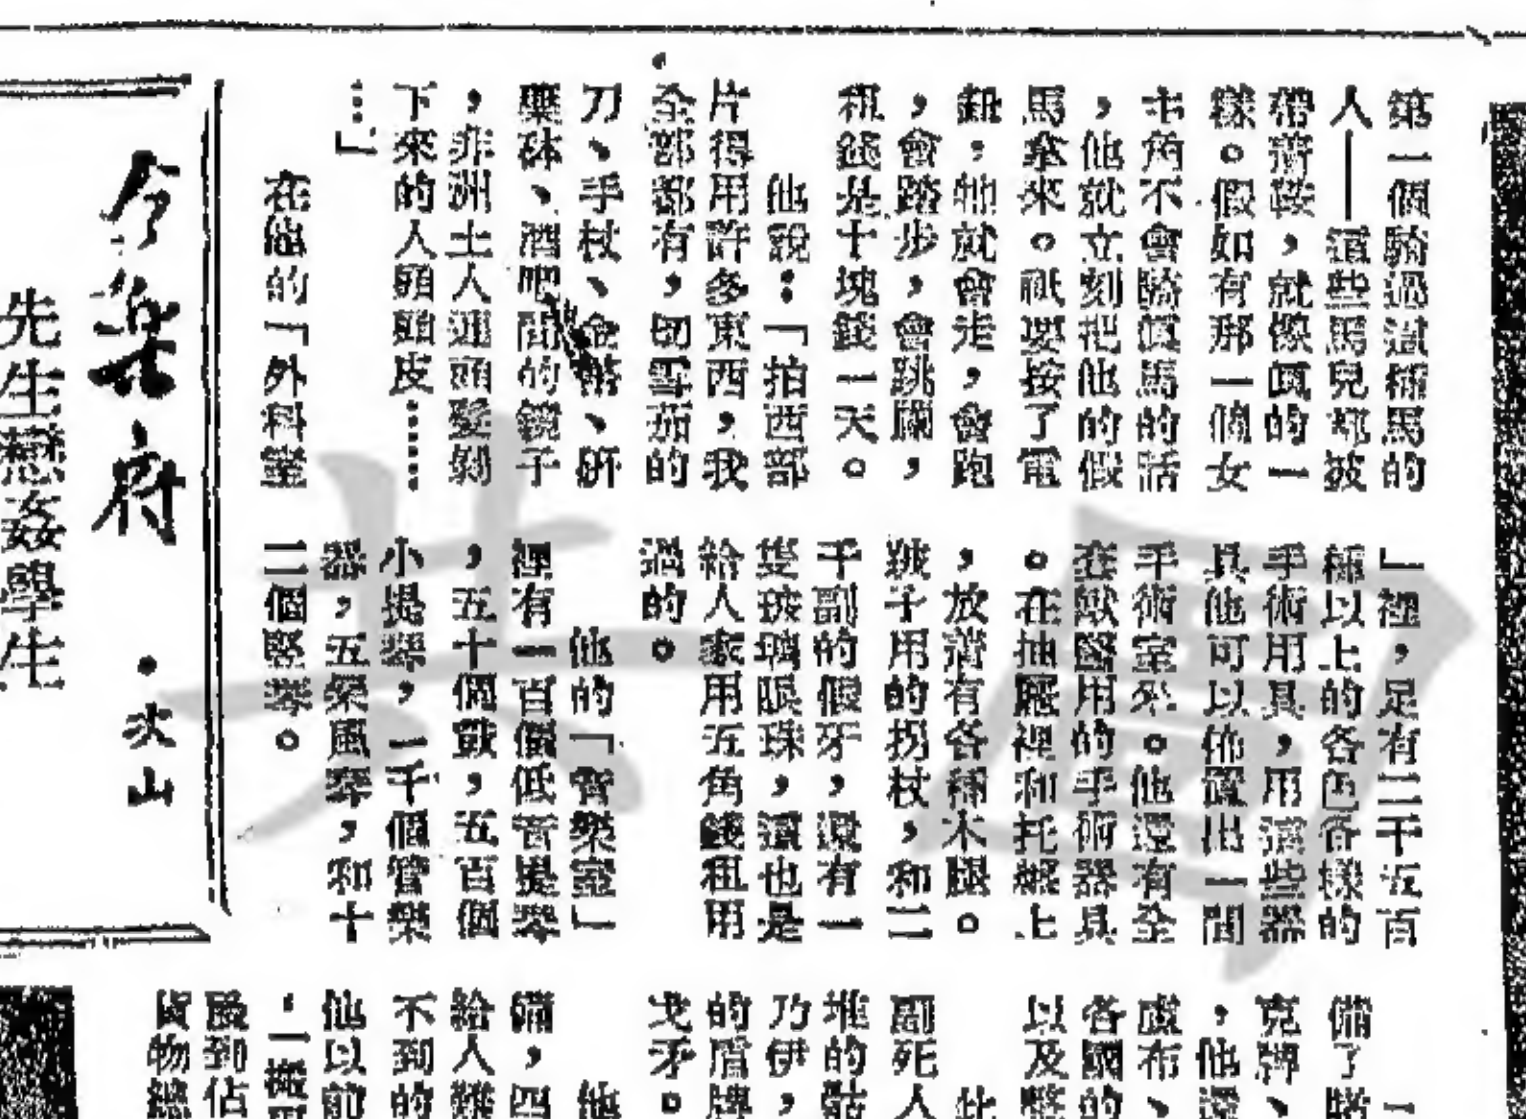 第一個騎過這種馬的
人——這些馬兒都披
帶着鞍,就像真的一
樣。假如有那一個女
主角不會騎真馬的話
,他就立刻把他的假
馬拿來。祇要按了電
鈕,牠就會走,會跑
,會踏步,會跳圈,
租錢是十塊錢一天。
他說:「拍西部
片得用許多東西,我
全部都有,切雪茄的
刀、手杖、金幣、研
藥砵、酒吧間的鏡子
,非洲土人連頭髮剝
下來的人頭頭皮……
…」
在他的「外科室
」裡,足有二千五百
種以上的各色各樣的
手術用具,用這些器
具他可以佈置出一間
手術室來。他還有全
套獸醫用的手術器具
。在抽屜裡和托經上
,放着有各種木腿。
跛子用的拐杖,和二
千副的假牙,還有一
隻玻璃眼珠,這也是
給人家用五角錢租用
過的。
他的「音樂室」
裡有一百個低音提琴
,五十個鼓,五百個
小提琴,一千個管樂
器,五架風琴,和十
二個豎琴。
今樂府
·次山
先生戀姦學生
備了
克牌、
,他還
戲布、
各國的
以及
此
副死人
堆的骷
乃伊,
的盾牌
戈矛。
他
備,四
給人
不到的
他以前
,一搬
受到佔
貨物總